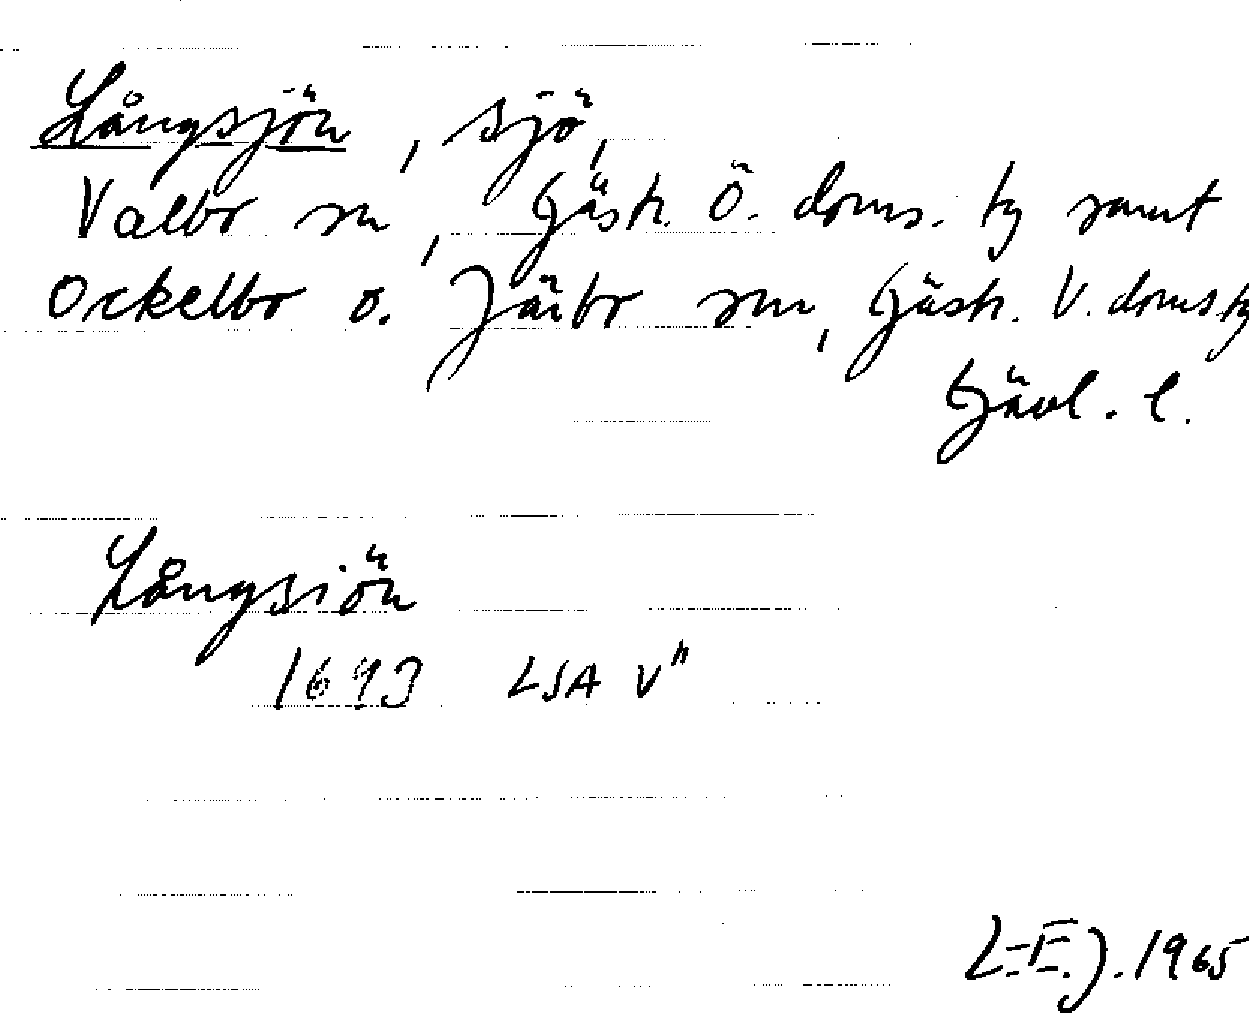 Långsjön, sjö,
Valbo sn, Gästr. Ö. doms. tg samt
Ockelbo o. Järbo snr, Gästr. V. doms.tg
Gävl. l.
Långsiön
1693 LSA V"
L-E.J. 1965